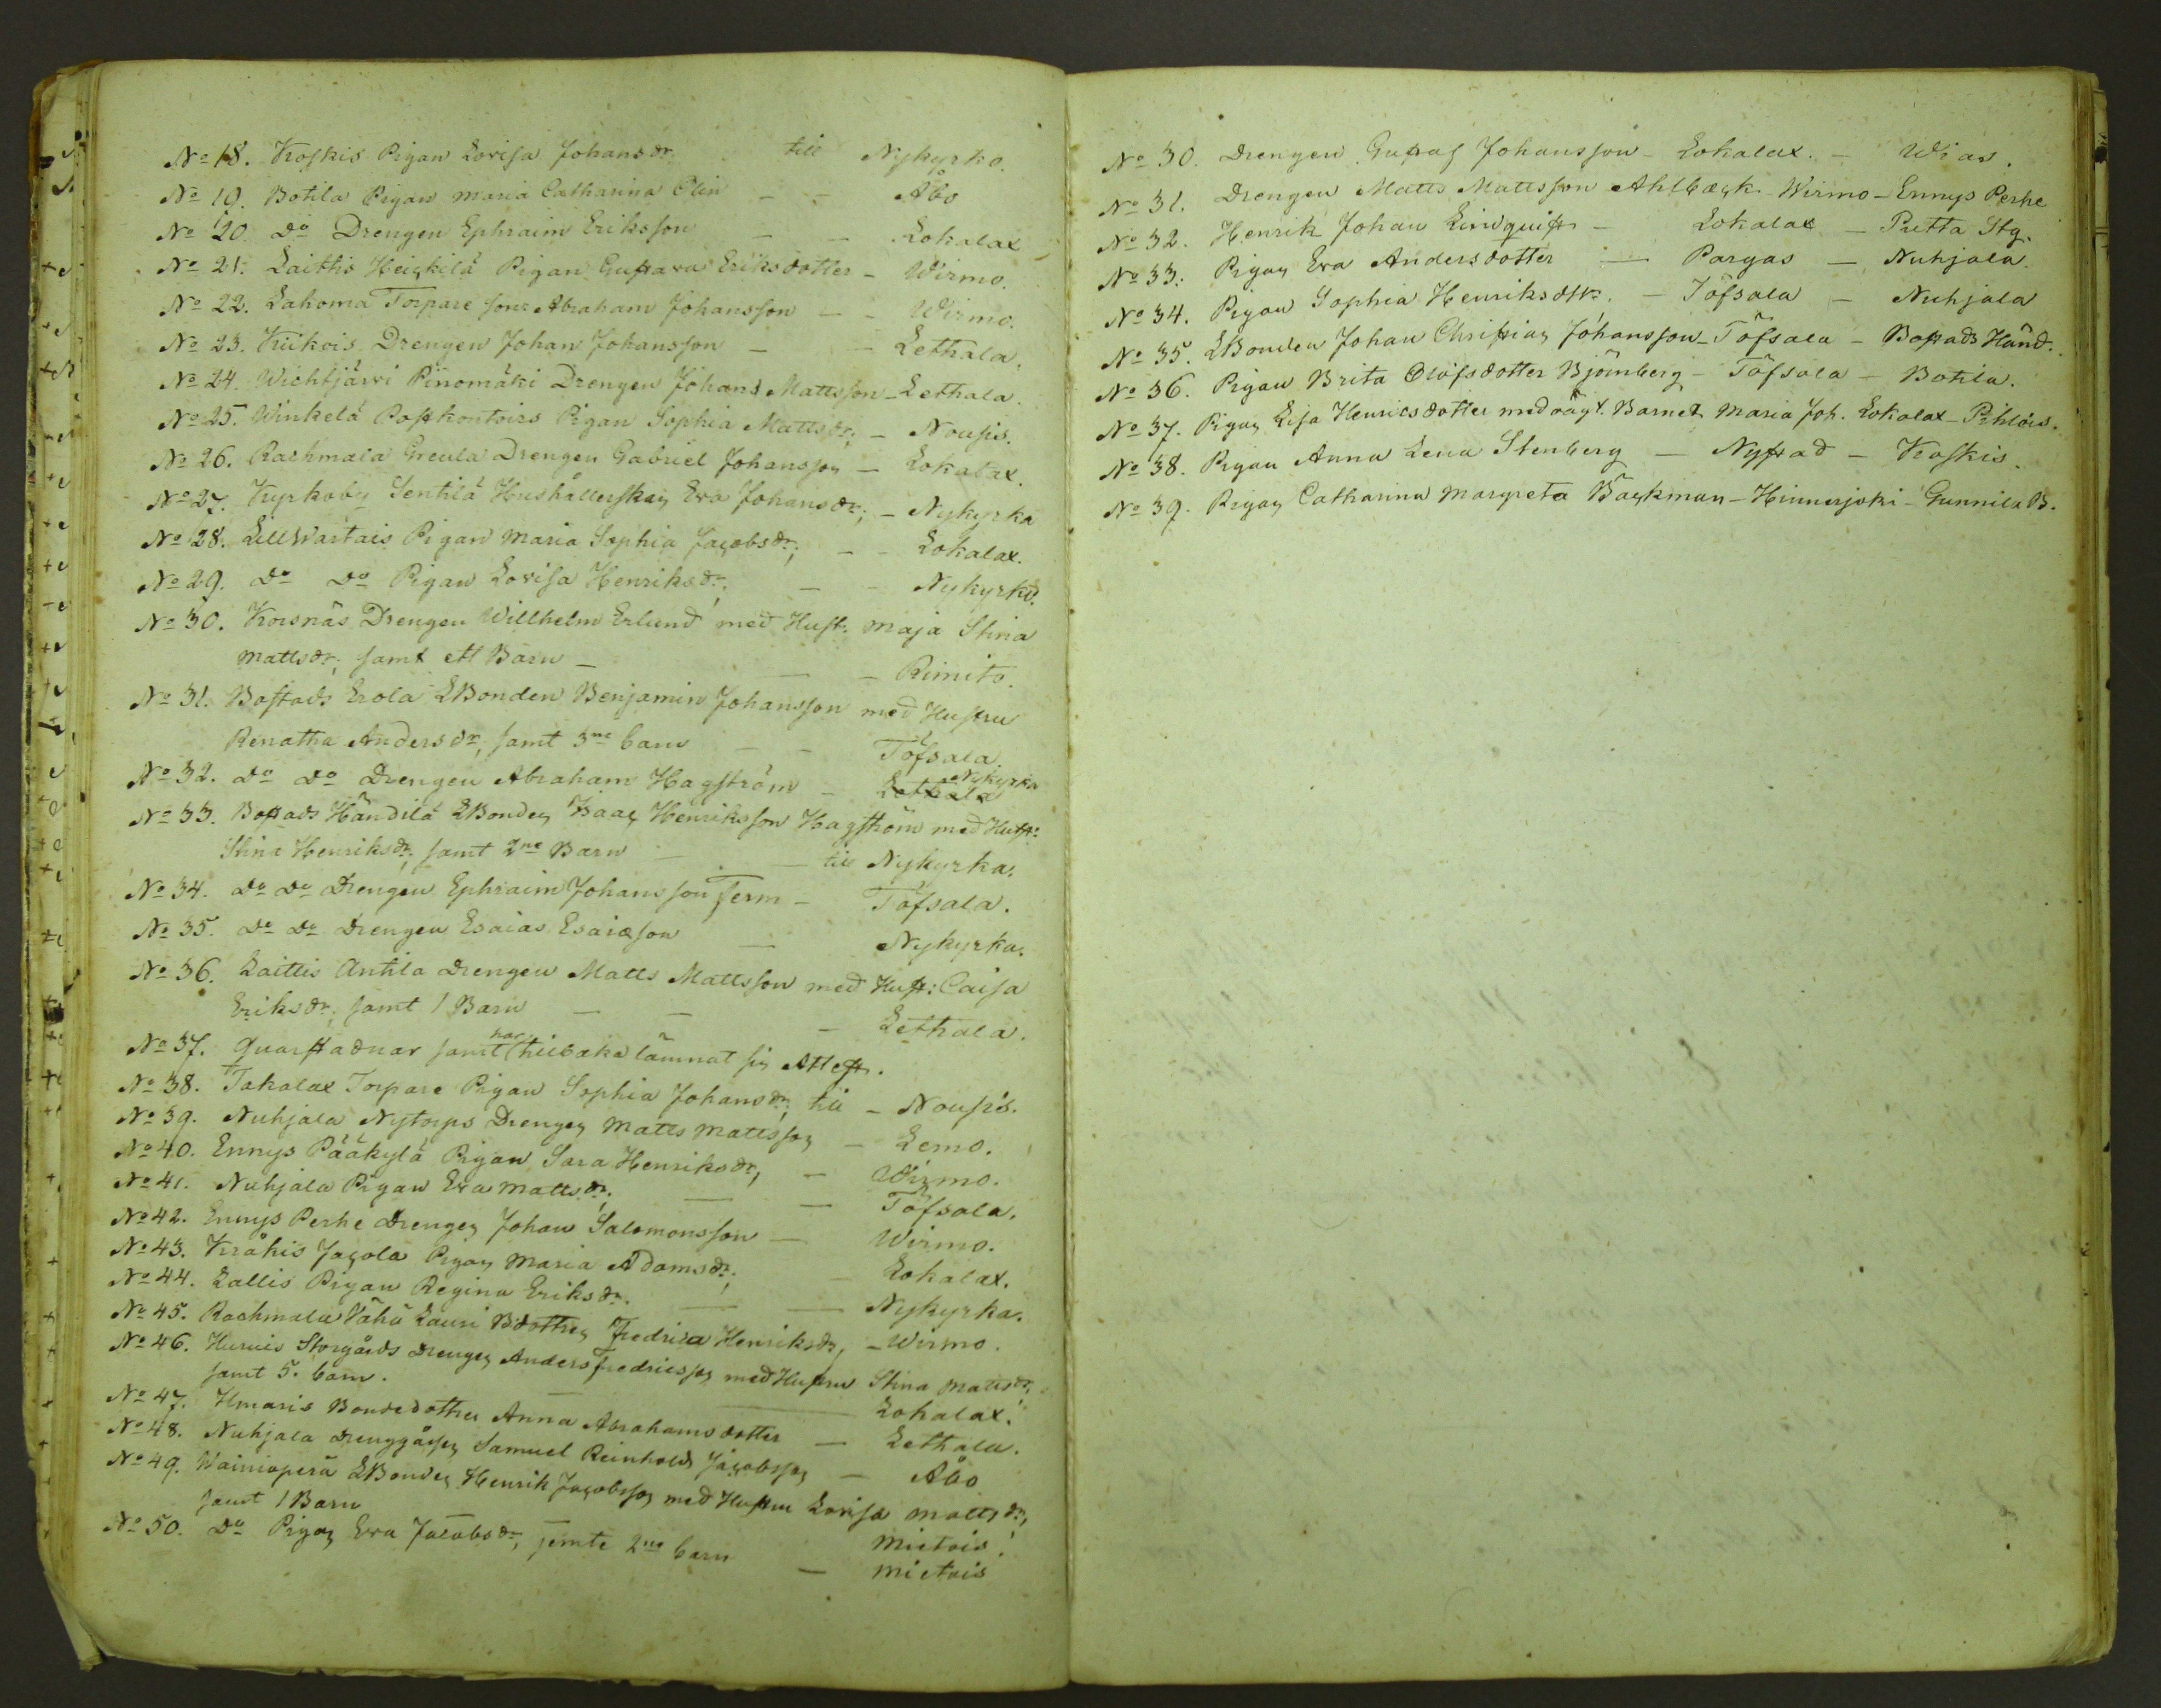 No 18. Koskis Pigan Lovisa Johansdr. till Nykyrko.
No 19. Botila Pigan Maria Catharina Elin - - Åbo
No 20. Do Drengen Ephraim Eriksson - - Lokalax
No 21. Laittis Heickilä Pigan Gustava Eriksdotter - Wirmo.
No 22. Lahoma Torpare son Abraham Johansson - - Wirmo.
No 23. Kukois Drengen Johan Johansson - - Lethala.
No 24. Wichtjärvi Pinomäki Drengen Johans Mattsson - Lethala.
No 25. Winkelä Postkontoirs Pigan Sophia Mattsdr; - Nousis.
No 26. Rachmala Greula Drengen Gabriel Johansson - Lokalax.
No 27. Kyrkoby Sentilä Hushållerskan Eva Johansdr; - Nykyrka
No 28. LillWartais Pigan Maria Sophia Jacobsdr; - - Lokalax.
No 29. Do Do Pigan Lovisa Henriksdr; - - Nykyrko.
No 30. Korsnäs Drengen Willhelm Erlund med Hust. Maja Stina
Mattsdr; samt ett Barn - - - Rimito.
No 31. Bostads Erola LBonden Benjamin Johansson med Hustru
Renatha Andersdr; samt 3ne barn - - Töfsala.
No 32. Do Do Drengen Abraham Hagström - Lethala Nykyrka
No 33. Bostads Händilä LBonden Isaac Henriksson Hagström med Hust:
Stina Henriksdr; samt 2ne Barn - - till Nykyrka.
No 34. Do Do Drengen Ephraim Johansson Ferm - Töfsala.
No 35. Do Do Drengen Esaias Esaiæson - Nykyrka.
No 36. Laittis Antila Drengen Matts Mattsson med Hust: Caisa
Eriksdr; samt 1 Barn - - - Lethala.
No 37. Quarstadnar samt har tillbaka lämnat sin Attest.
No 38. Takalax Torpare Pigan Sophia Johansdr; till - Nousis.
No 39. Nuhjala Nytorps Drengen Matts Mattsson - Lemo.
No 40. Ennys Pääkylä Pigan Sara Henriksdr; - Wirmo.
No 41. Nuhjala Pigan Eva Mattsdr; - - Töfsala.
No 42. Ennys Perhe Drengen Johan Salomonsson - Wirmo.
No 43. Kråkis Jacola Pigan Maria Adamsdr; - Lokalax.
No 44. Lallis Pigan Regina Eriksdr. - - Nykyrka.
No 45. Rachmala Vähä Lauri Bdottren Fredrica Henriksdr, - Wirmo.
No 46. Hurnis Storgårds Drengen Anders Fredricsson med Hustru Stina Mattsdr,
samt 5. barn. - - Lokalax.
No 47. Hmaris Bondedotter Anna Abrahamsdotter - Lethala.
No 48. Nuhjala Drenggåssen Samuel Reinholds Jacobsson - Åbo
No 49. Wainionperä LBonden Henrik Jacobsson med Hustru Lovisa Mattsdr,
samt 1 Barn - Mietois.
No 50. Do Pigan Eva Jacobsdr, jemte 2ne barn - Mietois
No 30. Drengen Gustaf Johansson - Lokalax. - Wias.
No 31. Drengen Matts Mattsson Ahlbäck. Wirmo - Ennys Perhe
No 32. Henrik Johan Lindquist - Lokalax - Putta Stg.
No 33. Pigan Eva Andersdotter - Pargas - Nuhjala.
No 34. Pigan Sophia Henriksdttr. - Töfsala - Nuhjala
No 35. LBonden Johan Christian Johansson - Töfsala - Bostads Händ.
No 36. Pigan Brita Olofsdotter Björnberg - Töfsala - Botila.
No 37. Pigan Lisa Henricsdotter med oägt. Barnet Maria Joh. Lokalax - Pihlois.
No 38. Pigan Anna Lena Stenberg - Nystad - Koskis.
No 39. Pigan Catharina Margreta Backman - Hinnerjoki - Gunnila B.